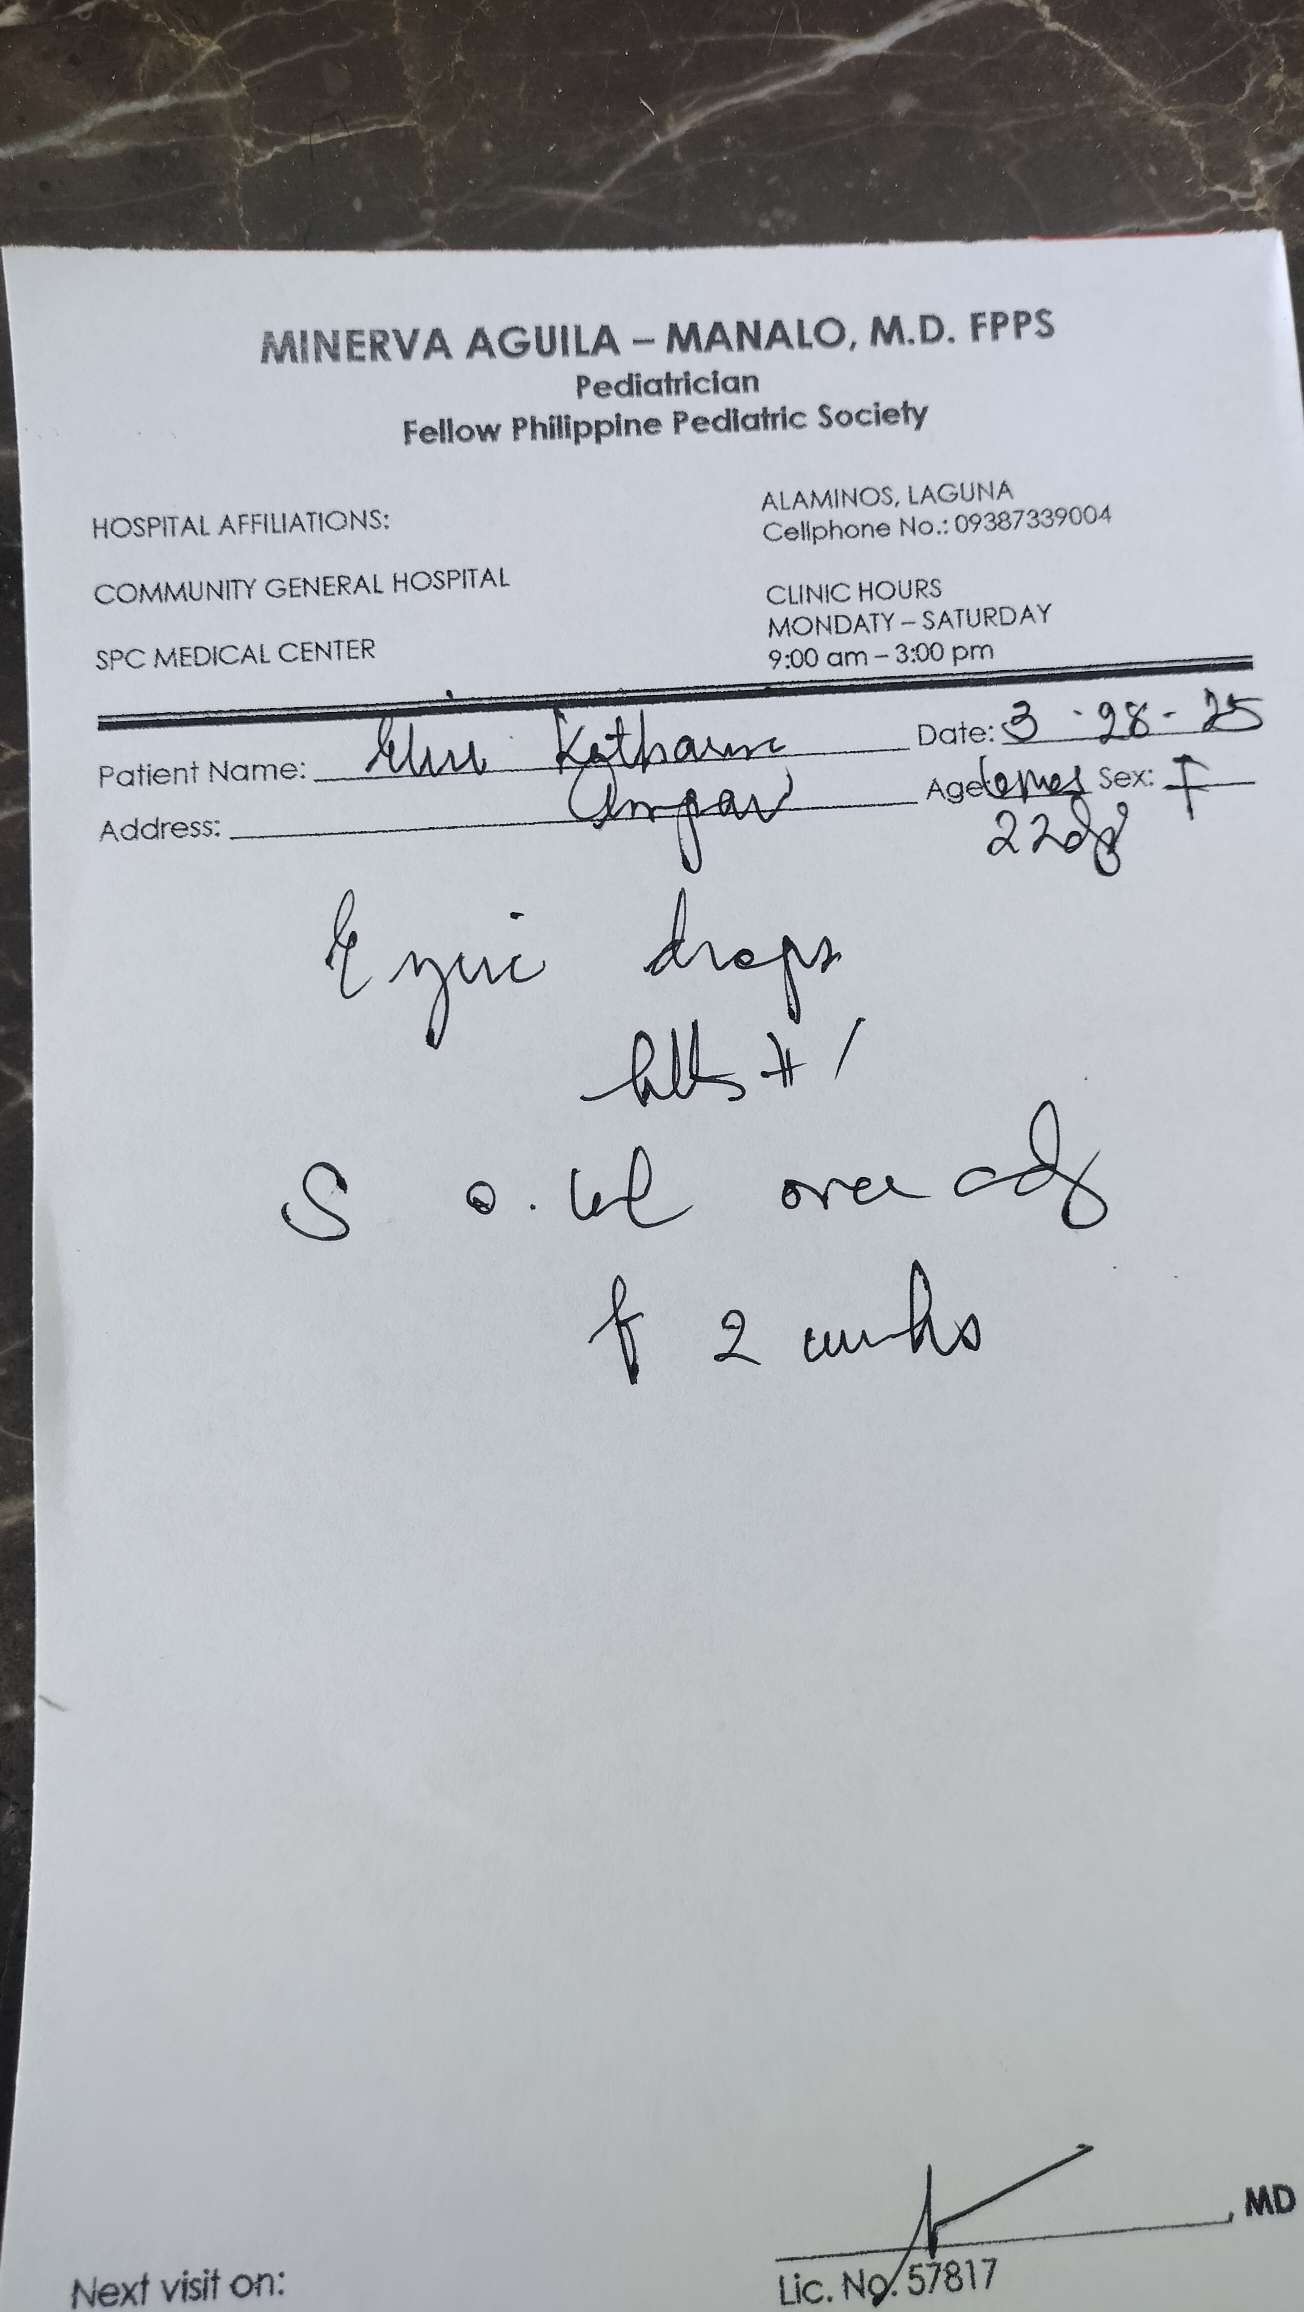 MINERVA AGUILA – MANALO, M.D. FPPS
Pediatrician
Fellow Philippine Pediatric Society
HOSPITAL AFFILIATIONS:
COMMUNITY GENERAL HOSPITAL
SPC MEDICAL CENTER
ALAMINOS, LAGUNA
Cellphone No.: 09387339004
CLINIC HOURS
MONDATY – SATURDAY
9:00 am – 3:00 pm
Patient Name: Katharine
Date: 3-28-25
Address:
Age Sex: F
22
drops
#1
S once
2 weeks
MD
Lic. No. 57817
Next visit on: